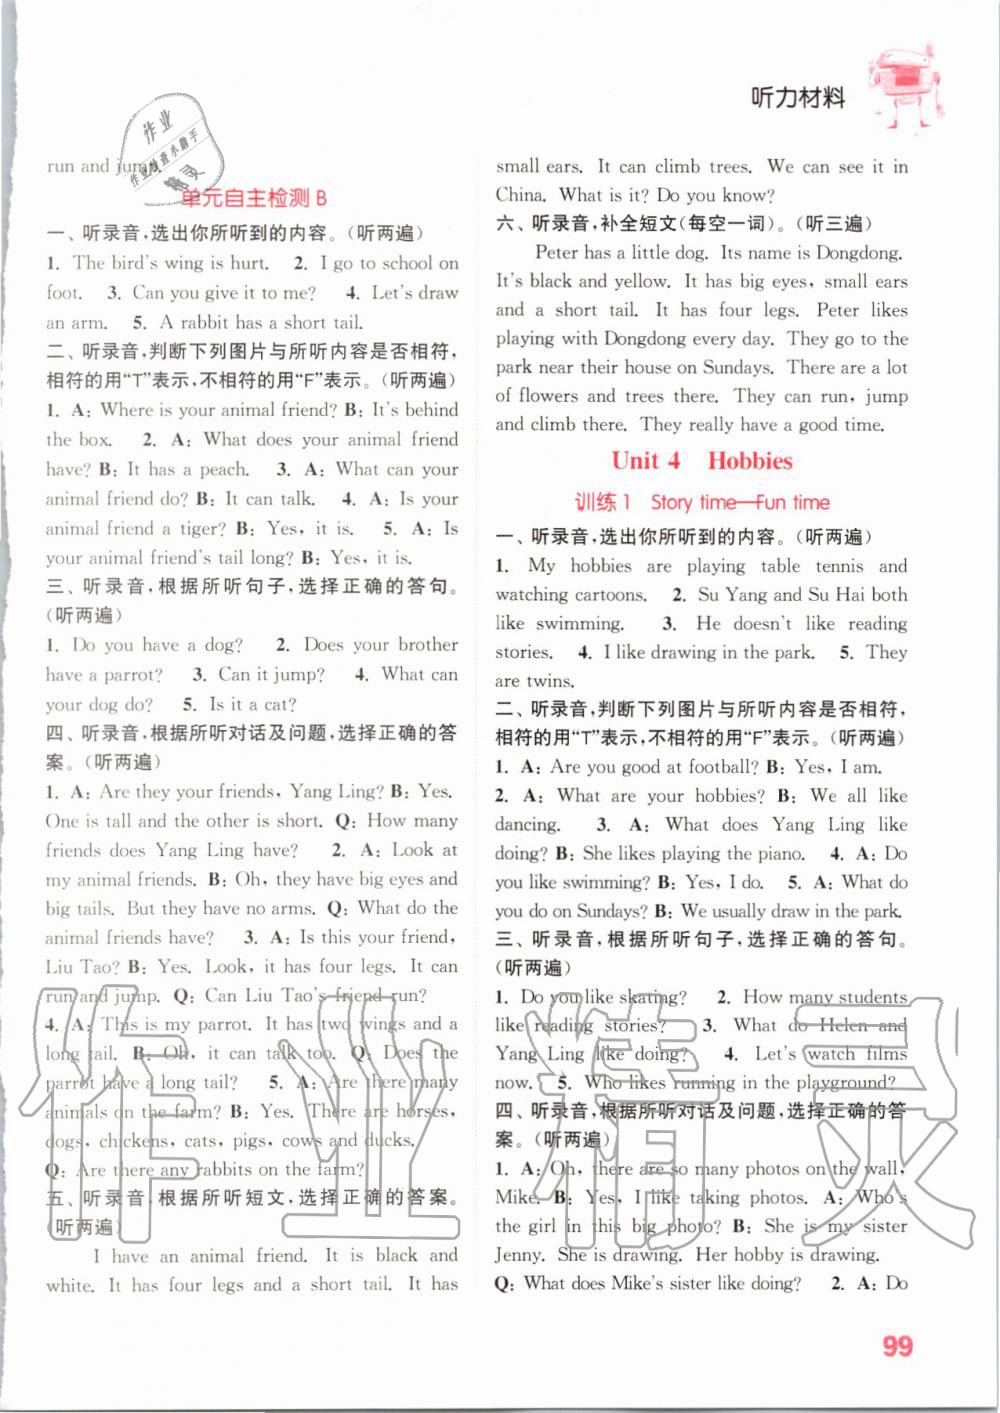 听力材料
作业
作业检查小助手
精灵
run and jump.
单元自主检测 B
一、听录音,选出你所听到的内容。(听两遍)
1. The bird's wing is hurt. 2. I go to school on
foot. 3. Can you give it to me? 4. Let's draw
an arm. 5. A rabbit has a short tail.
二、听录音,判断下列图片与所听内容是否相符,
相符的用“T”表示,不相符的用“F”表示。(听两遍)
1. A: Where is your animal friend? B: It's behind
the box. 2. A: What does your animal friend
have? B: It has a peach. 3. A: What can your
animal friend do? B: It can talk. 4. A: Is your
animal friend a tiger? B: Yes, it is. 5. A: Is
your animal friend's tail long? B: Yes, it is.
三、听录音,根据所听句子,选择正确的答句。
(听两遍)
1. Do you have a dog? 2. Does your brother
have a parrot? 3. Can it jump? 4. What can
your dog do? 5. Is it a cat?
四、听录音,根据所听对话及问题,选择正确的答
案。(听两遍)
1. A: Are they your friends, Yang Ling? B: Yes.
One is tall and the other is short. Q: How many
friends does Yang Ling have? 2. A: Look at
my animal friends. B: Oh, they have big eyes and
big tails. But they have no arms. Q: What do the
animal friends have? 3. A: Is this your friend,
Liu Tao? B: Yes. Look, it has four legs. It can
run and jump. Q: Can Liu Tao's friend run?
4. A: This is my parrot. It has two wings and a
long tail. B: Oh, it can talk too. Q: Does the
parrot have a long tail? 5. A: Are there many
animals on the farm? B: Yes. There are horses,
dogs, chickens, cats, pigs, cows and ducks.
Q: Are there any rabbits on the farm?
五、听录音,根据所听短文,选择正确的答案。
(听两遍)
I have an animal friend. It is black and
white. It has four legs and a short tail. It has
small ears. It can climb trees. We can see it in
China. What is it? Do you know?
六、听录音,补全短文(每空一词)。(听三遍)
Peter has a little dog. Its name is Dongdong.
It's black and yellow. It has big eyes, small ears
and a short tail. It has four legs. Peter likes
playing with Dongdong every day. They go to the
park near their house on Sundays. There are a lot
of flowers and trees there. They can run, jump
and climb there. They really have a good time.
Unit 4 Hobbies
训练1 Story time—Fun time
一、听录音,选出你所听到的内容。(听两遍)
1. My hobbies are playing table tennis and
watching cartoons. 2. Su Yang and Su Hai both
like swimming. 3. He doesn't like reading
stories. 4. I like drawing in the park. 5. They
are twins.
二、听录音,判断下列图片与所听内容是否相符,
相符的用“T”表示,不相符的用“F”表示。(听两遍)
1. A: Are you good at football? B: Yes, I am.
2. A: What are your hobbies? B: We all like
dancing. 3. A: What does Yang Ling like
doing? B: She likes playing the piano. 4. A: Do
you like swimming? B: Yes, I do. 5. A: What do
you do on Sundays? B: We usually draw in the park.
三、听录音,根据所听句子,选择正确的答句。
(听两遍)
1. Do you like skating? 2. How many students
like reading stories? 3. What do Helen and
Yang Ling like doing? 4. Let's watch films
now. 5. Who likes running in the playground?
四、听录音,根据所听对话及问题,选择正确的答
案。(听两遍)
1. A: Oh, there are so many photos on the wall,
Mike. B: Yes, I like taking photos. A: Who's
the girl in this big photo? B: She is my sister
Jenny. She is drawing. Her hobby is drawing.
Q: What does Mike's sister like doing? 2. A: Do
作业精灵
99